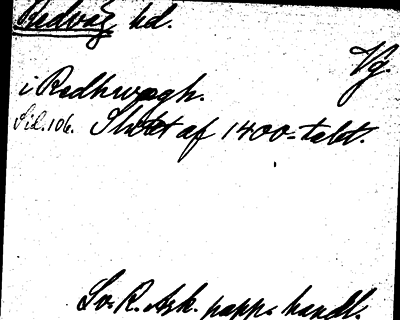 Redväg hd.
Vg.
i Redhwægh.
Sid. 106. Slutet af 1400-talet.
Sv. R. Ark. papp. handl.